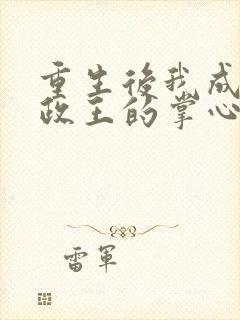 重生後我成
政王的掌心
雷軍